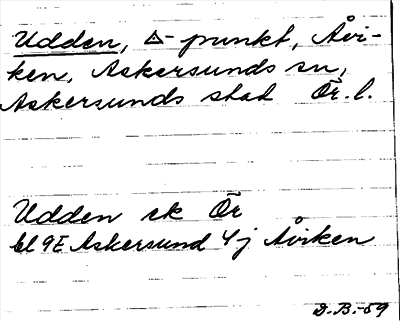 Udden, △-punkt, Åvi-
ken, Askersunds sn,
Askersunds stad Ör. l.
Udden ek Ör
bl 9E Askersund 4j Åviken
D.B.-59